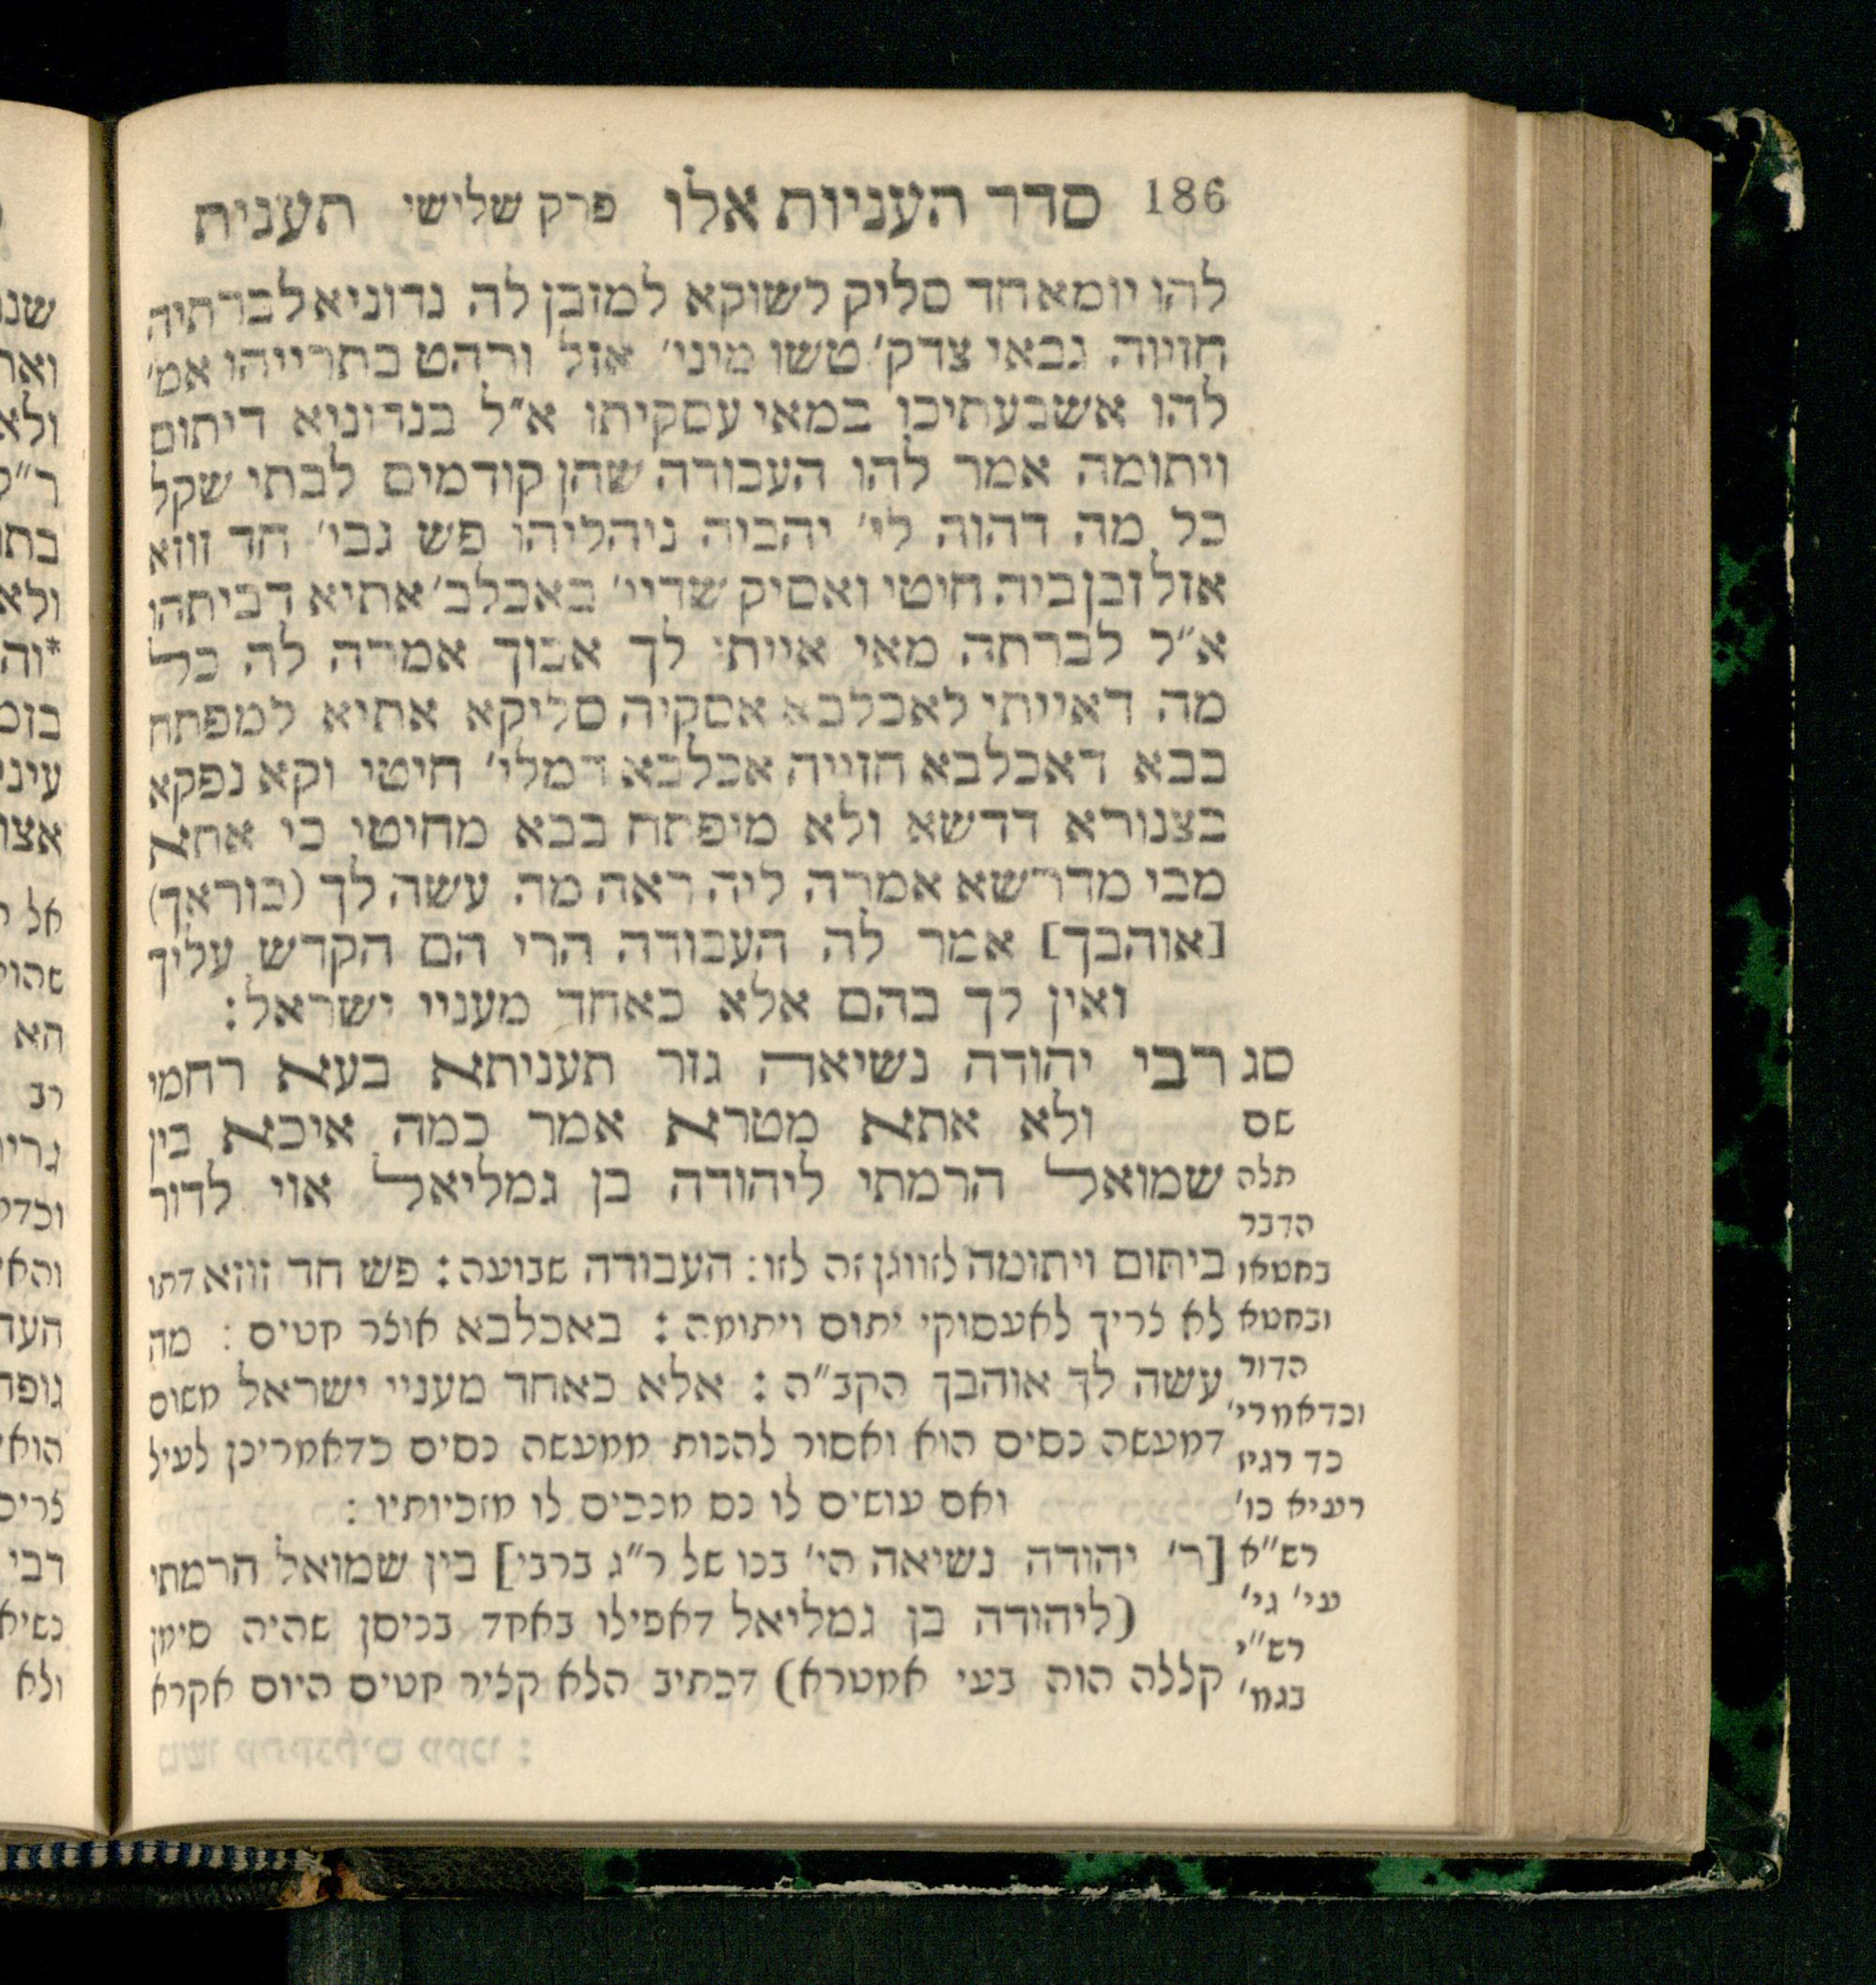 186 סדר תעניות אלו פרק שלישי תענית
להו יומא חד סליק לשוקא למזבן לה נדוניא לברתיה
חזיוה גבאי צדק׳ טשו מיני׳ אזל ורהט בתרייהו אמ׳
להו אשבעתיכו במאי עסקיתו א״ל בנדוניא דיתום
ויתומה אמר להו העבודה שהן קודמים לבתי שקל
כל מה דהוה לי׳ יהביה ניהליהו פש גבי׳ חד זוזא
אזל זבן ביה חיטי ואסיק שדיי׳ באכלב׳ אתיא דביתהו
א״ל לברתה מאי אייתי לך אבוך אמרה לה כל
מה דאייתי לאכלבא אסקיה סליקא אתיא למפתח
בבא דאכלבא חזייה אכלבא דמלי׳ חיטי וקא נפקא
בצנורא דדשא ולא מיפתח בבא מחיטי כי אתא
מבי מדרשא אמרה ליה ראה מה עשה לך (בוראך)
[אוהבך] אמר לה העבודה הרי הם הקדש עליך
ואין לך בהם אלא כאחד מעניי ישראל:
סג רבי יהודה נשיאה גזר תעניתא בעא רחמי
שם ולא אתא מטרא אמר כמה איכא בין
תלה שמואל הרמתי ליהודה בן גמליאל אוי לדור
הדבר
בחטאו ביתום ויתומה לזווגן זה לזו: העבודה שבועה: פש חד זוזא דתו
ובחטא לא צריך לאעסוקי יתום ויתומה: באכלבא אוצר חטים: מה
הדור עשה לך אוהבך הקב״ה: אלא כאחד מעניי ישראל משום
וכדאמרי׳
כד רגיז דמעשה נסים הוא ואסור להנות ממעשה נסים כדאמרינן לעיל
רעיא כו׳ ואם עושים לו נס מנכים לו מזכיותיו:
רש״א [ר׳ יהודה נשיאה הי׳ בנו של ר״ג ברבי] בין שמואל הרמתי
עי׳ גי׳
רש״י (ליהודה בן גמליאל דאפילו באחד בניסן שהיה סימן
בגמ׳ קללה הוה בעי אמטרא) דכתיב הלא קציר חטים היום אקרא